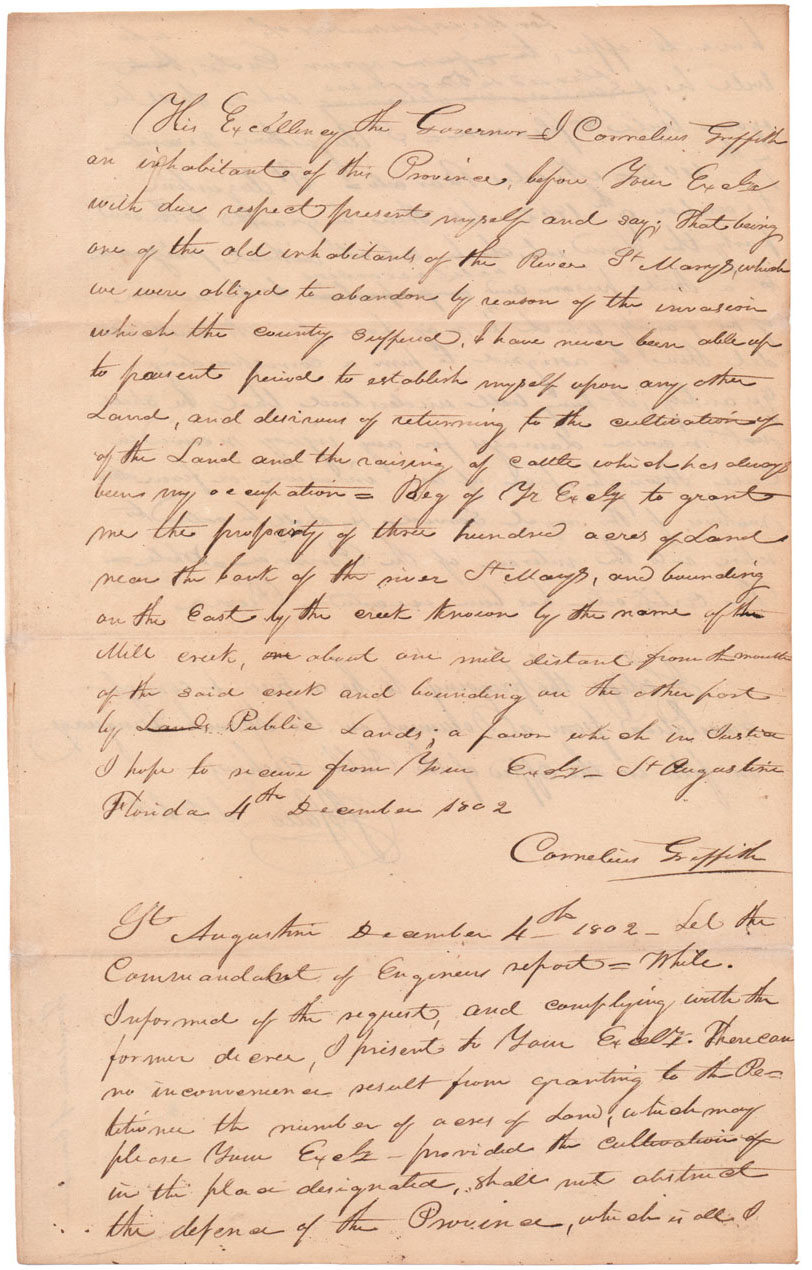 His Excellency the Governor = I Cornelius Griffith
an inhabitant of this Province, before Your Excely
with due respect present myself and say; That being
one of the old inhabitants of the River St Marys, which
we were obliged to abandon by reason of the invasion
which the county suffered, I have never been able up
to present period to establish myself upon any other
Land, and desirous of returning to the cultivation of
of the Land and the raising of cattle which has always
been my occupation = Beg of Yr Excely to grant
me the property of three hundred acres of Land
near the bank of the river St Marys, and bounding
on the East by the creek known by the name of the
Mill creek, one about one mile distant from the mouth
of the said creek and bounding on the other part
by Lands Public Lands; a favor which in Justice
I hope to receive from Your Excely – St Augustine
Florida 4th December 1802
Cornelius Griffith
St Augustine December 4th 1802 – Let the
Commandant of Engineers report = White.
Informed of the request, and complying with the
former decree, I present to Your Excely. There can
no inconvenience result from granting to the Pe=
titioner the number of acres of Land, which may
please Your Excely – provided the cultivation of
in the place designated, shall not abstruct
the defence of the Province, which is all I